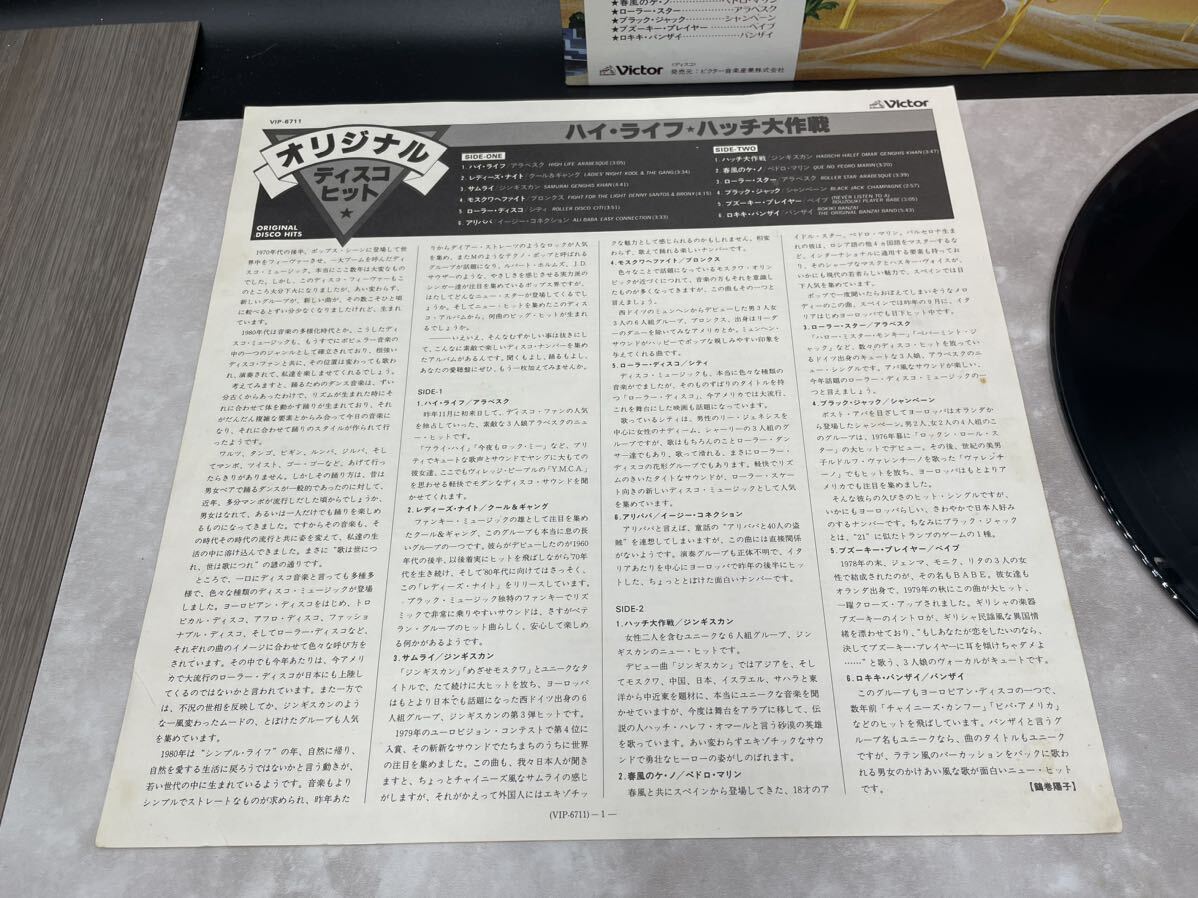 ★春風のケ・ノ………ペドロ・マリン
★ローラー・スター………アラベスク
★ブラック・ジャック………シャンペーン
★ブズーキー・プレイヤー………ベイブ
★ロキキ・バンザイ………バンザイ
Victor
〈ディスコ〉
発売元：ビクター音楽産業株式会社
VIP-6711
Victor
オリジナル
ディスコ
ヒット
★
ORIGINAL
DISCO HITS
ハイ・ライフ★ハッチ大作戦
SIDE-ONE
1. ハイ・ライフ／アラベスク HIGH LIFE ARABESQUE (3:05)
2. レディーズ・ナイト／クール&ギャング LADIES' NIGHT KOOL & THE GANG (3:34)
3. サムライ／ジンギスカン SAMURAI GENGHIS KHAN (4:41)
4. モスクワへファイト／ブロンクス FIGHT FOR THE LIGHT DENNY SANTOS & BRONX (4:15)
5. ローラー・ディスコ／シティ ROLLER DISCO CITI (3:51)
6. アリババ／イージー・コネクション ALI BABA EASY CONNECTION (3:33)
SIDE-TWO
1. ハッチ大作戦／ジンギスカン HADSCHI HALEF OMAR GENGHIS KHAN (3:47)
2. 春風のケ・ノ／ペドロ・マリン QUE NO PEDRO MARIN (3:20)
3. ローラー・スター／アラベスク ROLLER STAR ARABESQUE (3:39)
4. ブラック・ジャック／シャンペーン BLACK JACK CHAMPAGNE (2:57)
5. ブズーキー・プレイヤー／ベイブ (NEVER LISTEN TO A) BOUZOUKI PLAYER BABE (3:05)
6. ロキキ・バンザイ／バンザイ ROKIKI BANZAI THE ORIGINAL BANZAI BAND (5:43)
1970年代の後半、ポップス・シーンに登場して世
界中をフィーヴァーさせ、一大ブームを呼んだディ
スコ・ミュージック、本当にここ数年は大変なもの
でした。しかし、このディスコ・フィーヴァーもこ
のところ大分下火になりましたが、あい変わらず、
新しいグループが、新しい曲が、その数こそひと頃
に較べるとずい分少なくなりましたけれど、生まれ
ています。
1980年代は音楽の多様化時代とか、こうしたディ
スコ・ミュージックも、もうすでにポピュラー音楽の
中の一つのジャンルとして確立されており、根強い
ディスコ・ファンと共に、その位置は変わっても歌わ
れ、演奏されて、私達を楽しませてくれるでしょう。
考えてみますと、踊るためのダンス音楽は、ずい
分古くからあったわけで、リズムが生まれた時にそ
れに合わせて体を動かす踊りが生まれており、それ
がだんだん複雑な要素とからみ合って今日の音楽に
なり、それに合わせて踊りのスタイルが作られて行
ったようです。
ワルツ、タンゴ、ビギン、ルンバ、ジルバ、そし
てマンボ、ツイスト、ゴー・ゴーなど、あげて行っ
たらきりがありません。しかしその踊り方は、昔は
男女ペアで踊るダンスが一般的であったのに対して、
近年、多分マンボが流行しだした頃からでしょうか、
男女はなれて、あるいは一人だけでも踊りを楽しめ
るものになってきました。ですからその音楽も、そ
の時代その時代の流行と共に姿を変えて、私達の生
活の中に溶け込んできました。まさに“歌は世につ
れ、世は歌につれ”の諺の通りです。
ところで、一口にディスコ音楽と言っても多種多
様で、色々な種類のディスコ・ミュージックが登場
しました。ヨーロピアン・ディスコをはじめ、トロ
ピカル・ディスコ、アフロ・ディスコ、ファッショ
ナブル・ディスコ、そしてローラー・ディスコなど、
それぞれの曲のイメージに合わせて色々な呼び方を
されています。その中でも今年あたりは、今アメリ
カで大流行のローラー・ディスコが日本にも上陸し
てくるのではないかと言われています。また一方で
は、不況の世相を反映してか、ジンギスカンのよう
な一風変わったムードの、とぼけたグループも人気
を集めています。
1980年は“シンプル・ライフ”の年、自然に帰り、
自然を愛する生活に戻ろうではないかと言う動きが、
若い世代の中に生まれているようです。音楽もより
シンプルでストレートなものが求められ、昨年あた
りからダイアー・ストレーツのようなロックが人気
を集め、またMのようなテクノ・ポップと呼ばれる
グループが話題になり、ルパート・ホルムズ、J.D.
サウザーのような、やさしさを感じさせる実力派の
シンガー達が注目を集めているポップス界ですが、
はたしてどんなニュー・スターが登場してくるでし
ょうか。そしてニュー・ヒットを集めたこのディス
コ・アルバムから、何曲のビッグ・ヒットが生まれ
るでしょうか。
――いえいえ、そんなむずかしい事は抜きにし
て、こんなに素敵で楽しいディスコ・ナンバーを集
めたアルバムがあるんです。聞くもよし、踊るもよし、
あなたの愛聴盤にぜひ、もう一枚加えてみませんか。
SIDE-1
1. ハイ・ライフ／アラベスク
昨年11月に初来日して、ディスコ・ファンの人気
を独占していった、素敵な3人娘アラベスクのニュ
ー・ヒットです。
「フライ・ハイ」「今夜もロック・ミー」など、プリ
ティでキュートな歌声とサウンドでヤングに大もての
彼女達、ここでもヴィレッジ・ピープルの「Y.M.C.A.」
を思わせる軽快でモダンなディスコ・サウンドを聞
かせてくれます。
2. レディーズ・ナイト／クール&ギャング
ファンキー・ミュージックの雄として注目を集め
たクール&ギャング、このグループも本当に息の長
いグループの一つです。彼らがデビューしたのが1960
年代の後半、以後着実にヒットを飛ばしながら70年
代を生き続け、そして'80年代に向けてはさっそく、
この「レディーズ・ナイト」をリリースしています。
ブラック・ミュージック独特のファンキーでリズ
ミックで非常に乗りやすいサウンドは、さすがベテ
ラン・グループのヒット曲らしく、安心して楽しめ
る何かがあるようです。
3. サムライ／ジンギスカン
「ジンギスカン」「めざせモスクワ」とユニークなタ
イトルで、たて続けに大ヒットを放ち、ヨーロッパ
はもとより日本でも話題になった西ドイツ出身の6
人組グループ、ジンギスカンの第3弾ヒットです。
1979年のユーロビジョン・コンテストで第4位に
入賞、その斬新なサウンドでたちまちのうちに世界
の注目を集めました。この曲も、我々日本人が聞き
ますと、ちょっとチャイニーズ風なサムライの感じ
がしますが、それがかえって外国人にはエキゾチッ
クな魅力として感じられるのかもしれません。相変
わらず、歌えて踊れる楽しいナンバーです。
4. モスクワへファイト／ブロンクス
色々なことで話題になっているモスクワ・オリン
ピックが近づくにつれて、音楽の方もそれを意識し
たものが多くなってきますが、この曲もその一つと
言えましょう。
西ドイツのミュンヘンからデビューした男3人女
3人の6人組グループ、ブロンクス、出身はリーダ
ーのダニーを除いてみなアメリカとか。ミュンヘン・
サウンドがハッピーでポップな親しみやすい印象を
与えてくれる曲です。
5. ローラー・ディスコ／シティ
ディスコ・ミュージックも、本当に色々な種類の
音楽がでましたが、そのものずばりのタイトルを持
つ「ローラー・ディスコ」、今アメリカでは大流行、
これを舞台にした映画も話題になっています。
歌っているシティは、男性のリー・ジェネシスを
中心に女性のナディーム、シャーリーの3人組グル
ープですが、歌はもちろんのことローラー・ダンサ
ー達でもあり、歌って滑れる、まさにローラー・デ
ィスコの花形グループでもあります。軽快でリズム
のきいたタイトなサウンドが、ローラー・スケート
向きの新しいディスコ・ミュージックとして人気
を集めています。
6. アリババ／イージー・コネクション
アリババと言えば、童話の“アリババと40人の盗
賊”を連想してしまいますが、この曲には直接関係
がないようです。演奏グループも正体不明で、イタ
リアあたりを中心にヨーロッパで昨年の後半にヒッ
トした、ちょっととぼけた面白いナンバーです。
SIDE-2
1. ハッチ大作戦／ジンギスカン
女性二人を含むユニークな6人組グループ、ジン
ギスカンのニュー・ヒットです。
デビュー曲「ジンギスカン」ではアジアを、そし
てモスクワ、中国、日本、イスラエル、サハラと東
洋から中近東を題材に、本当にユニークな音楽を聞
かせていますが、今度は舞台をアラブに移して、伝
説の人ハッチ・ハレフ・オマールと言う砂漠の英雄
を歌っています。あい変わらずエキゾチックなサウ
ンドで勇壮なヒーローの姿がしのばれます。
2. 春風のケ・ノ／ペドロ・マリン
春風と共にスペインから登場してきた、18才のア
イドル・スター、ペドロ・マリン。バルセロナ生ま
れの彼は、ロシア語の他4ヵ国語をマスターするな
ど、インターナショナルに通用する要素も持ってお
り、そのシャープなマスクとハスキー・ヴォイスが、
いかにも現代の若者らしい魅力で、スペインでは目
下人気を集めています。
ポップで一度聞いたらおぼえてしまいそうなメロ
ディーのこの曲、スペインでは昨年の9月に、イタ
リアはじめヨーロッパでも目下ヒット中です。
3. ローラー・スター／アラベスク
「ハロー・ミスター・モンキー」「ペパーミント・ジ
ャック」など、数々のディスコ・ヒットを放ってい
るドイツ出身のキュートな3人娘、アラベスクのニュ
ー・シングルです。アバ風なサウンドが楽しい、
今年話題のローラー・ディスコ・ミュージックの一
つと言えましょう。
4. ブラック・ジャック／シャンペーン
ポスト・アバを目ざしてヨーロッパはオランダか
ら登場したシャンペーン。男2人、女2人の4人組こ
のグループは、1976年暮に「ロックン・ロール・ス
ター」の大ヒットでデビュー。その後、世紀の美男
子ルドルフ・ヴァレンチーノを歌った「ヴァレンチ
ーノ」でもヒットを放ち、ヨーロッパはもとよりア
メリカでも注目を集めました。
そんな彼らの久びさのヒット・シングルですが、
いかにもヨーロッパらしい、さわやかで日本人好み
のするナンバーです。ちなみにブラック・ジャック
とは、“21”に似たトランプのゲームの1種。
5. ブズーキー・プレイヤー／ベイブ
1978年の末、ジェンマ、モニク、リタの3人の女
性で結成されたのが、その名もBABE。彼女達も
オランダ出身で、1979年の秋にこの曲が大ヒット、
一躍クローズ・アップされました。ギリシャの楽器
ブズーキーのイントロが、ギリシャ民謡風な異国情
緒を漂わせており、“もしあなたが恋をしたいのなら、
決してブズーキー・プレイヤーに耳を傾けちゃダメよ
……”と歌う、3人娘のヴォーカルがキュートです。
6. ロキキ・バンザイ／バンザイ
このグループもヨーロピアン・ディスコの一つで、
数年前「チャイニーズ・カンフー」「ビバ・アメリカ」
などのヒットを飛ばしています。バンザイと言うグ
ループ名もユニークなら、曲のタイトルもユニーク
ですが、ラテン風のパーカッションをバックに歌わ
れる男女のかけあい風な歌が面白いニュー・ヒット
【鶴巻陽子】
(VIP-6711) ― 1 ―